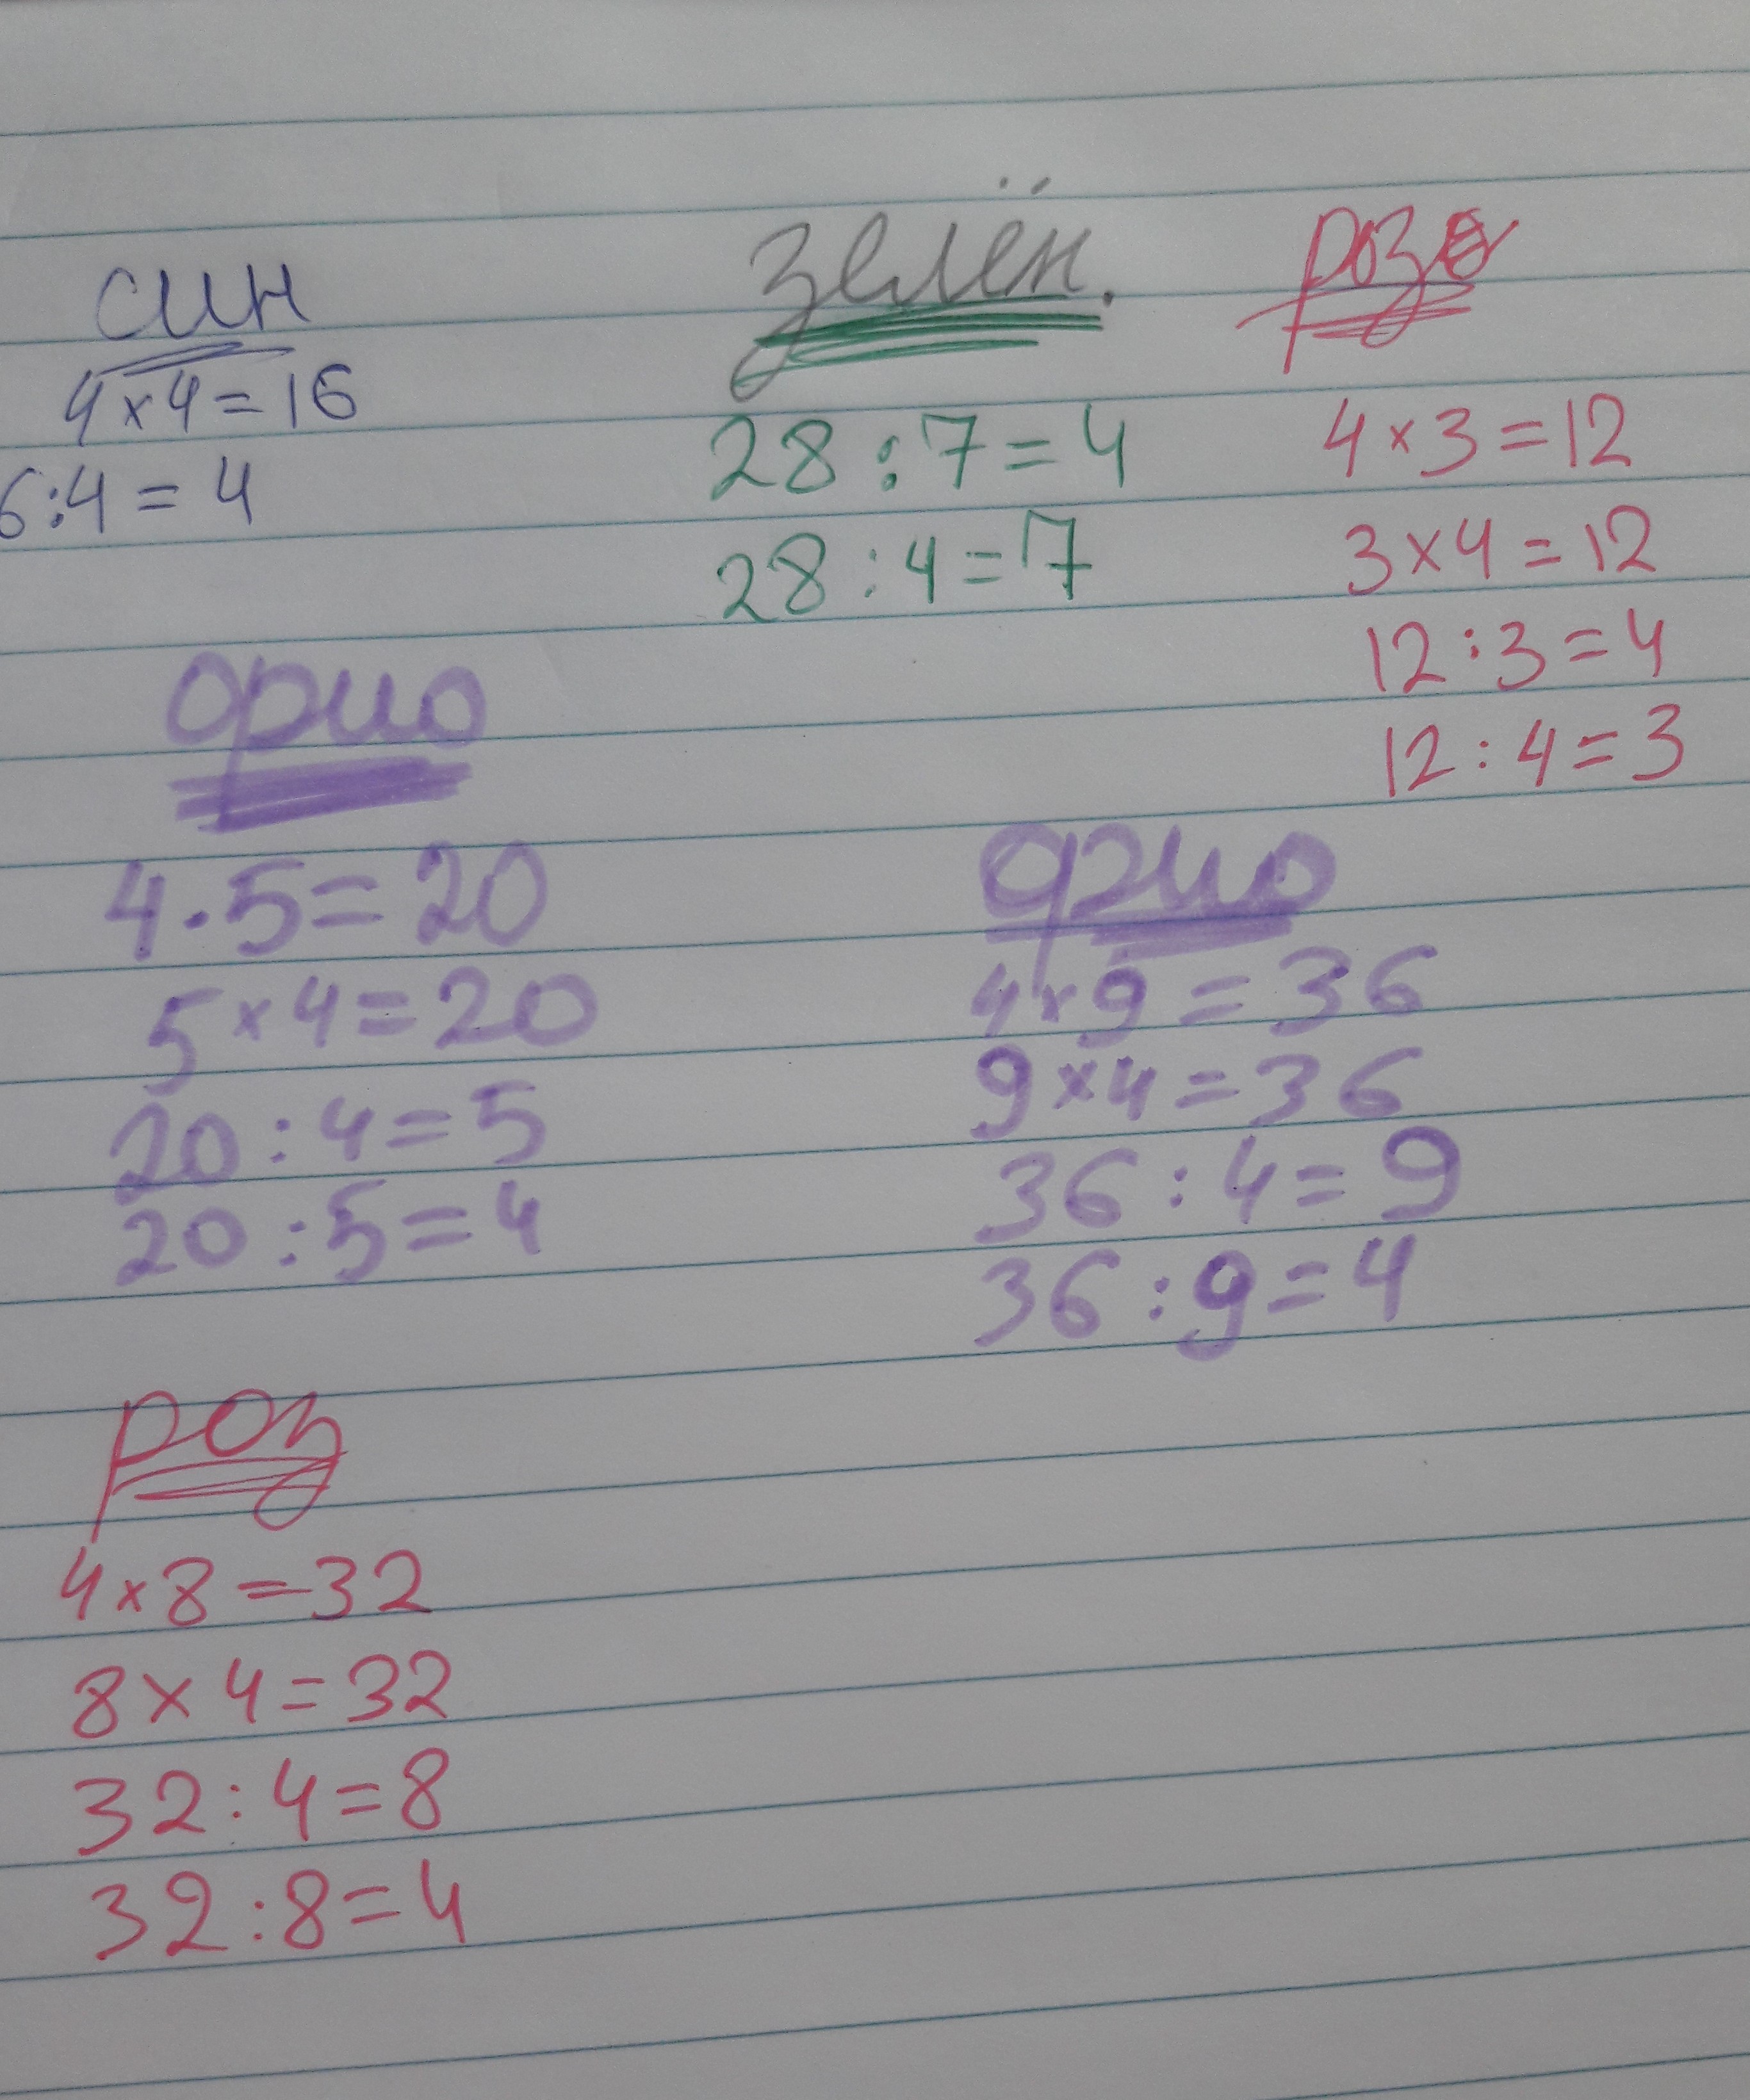 син
4×4=16
6:4=4
зелён.
28:7=4
28:4=7
роз
4×3=12
3×4=12
12:3=4
12:4=3
орио
4·5=20
5×4=20
20:4=5
20:5=4
орио
4×9=36
9×4=36
36:4=9
36:9=4
роз
4×8=32
8×4=32
32:4=8
32:8=4